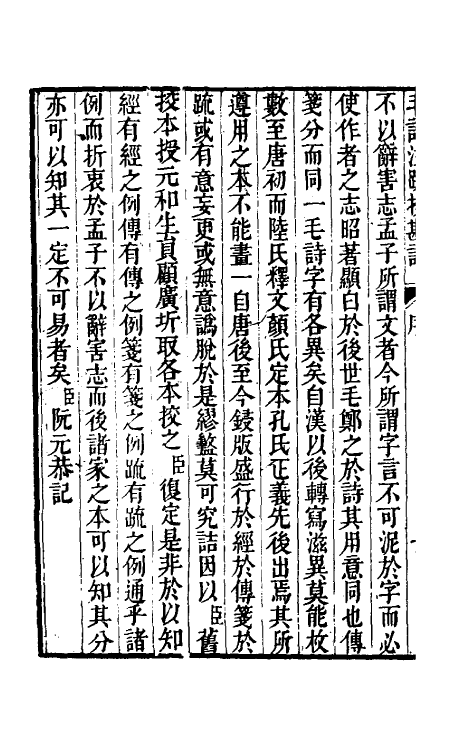 毛詩注疏挍勘記 序
不以辭害志孟子所謂文者今所謂字言不可泥於字而必
使作者之志昭著顯白於後世毛鄭之於詩其用意同也傳
箋分而同一毛詩字有各異矣自漢以後轉寫滋異莫能枚
數至唐初而陸氏釋文顏氏定本孔氏正義先後出焉其所
遵用之本不能畫一自唐後至今鋟版盛行於經於傳箋於
疏或有意妄更或無意譌脫於是繆盭莫可究詰因以臣舊
挍本授元和生員顧廣圻取各本挍之臣復定是非於以知
經有經之例傳有傳之例箋有箋之例疏有疏之例通乎諸
例而折衷於孟子不以辭害志而後諸家之本可以知其分
亦可以知其一定不可易者矣臣阮元恭記